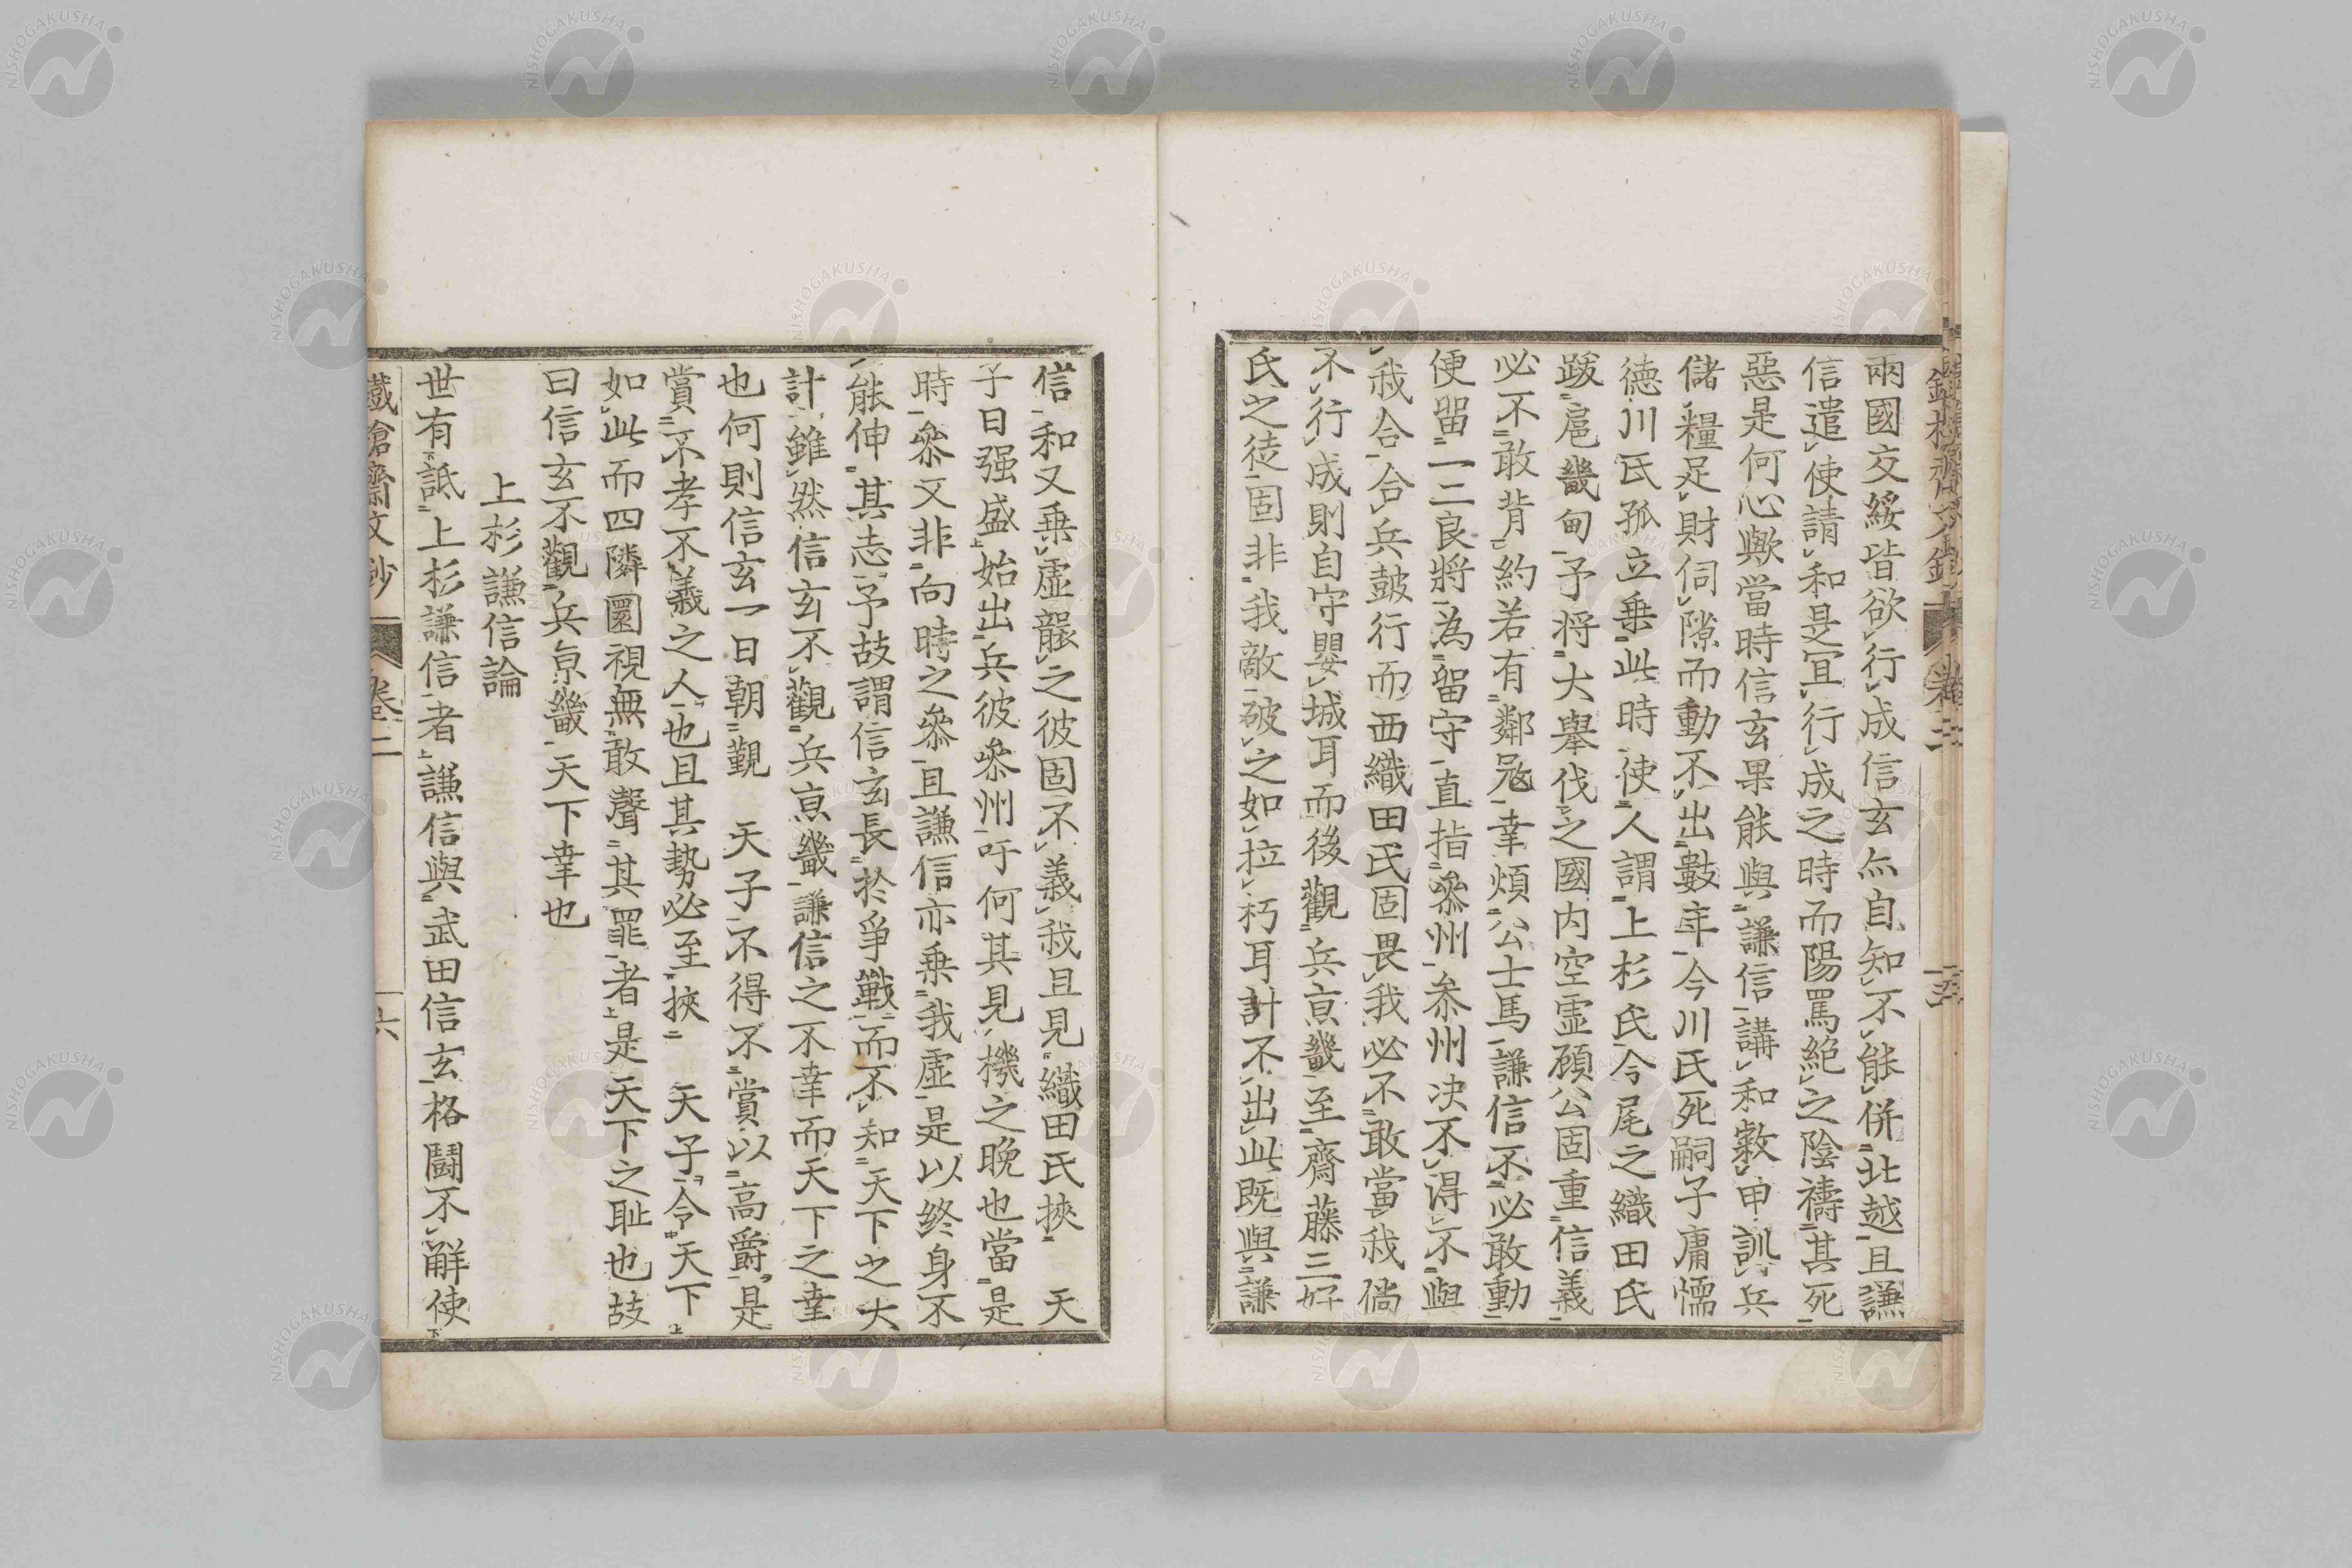 兩國交綏皆欲行成信玄亦自知不能併北越且謙
信遣使請和是宜行成之時而陽罵絶之陰禱其死
惡是何心歟當時信玄果能與謙信講和敦申訓兵
儲糧足財伺隙而動不出數年今川氏死嗣子庸懦
徳川氏孤立乗此時使人謂上杉氏今尾之織田氏
跋扈畿甸予将大舉伐之國内空虚顧公固重信義
必不敢背約若有鄰冦幸煩公士馬謙信不必敢動
便留一二良将為留守直指叅州叅州决不得不與
我合合兵鼓行而西織田氏固畏我必不敢當我倘
不行成則自守嬰城耳而後觀兵京畿至齋藤三好
氏之徒固非我敵破之如拉朽耳計不出此既與謙
信和又乗虚襲之彼固不義我且見織田氏挾　天
子日强盛始出兵彼叅州吁何其見機之晩也當是
時叅又非向時之叅且謙信亦乗我虚是以終身不
能伸其志予故謂信玄長於爭戰而不知天下之大
計雖然信玄不觀兵京畿謙信之不幸而天下之幸
也何則信玄一日朝覲　天子不得不賞以高爵是
賞不孝不義之人也且其勢必至挾　天子令天下
如此而四隣圜視無敢聲其罪者是天下之耻也故
曰信玄不觀兵京畿天下幸也
上杉謙信論
世有詆上杉謙信者謙信與武田信玄格鬪不觧使
鐵槍齋文鈔　卷二　六